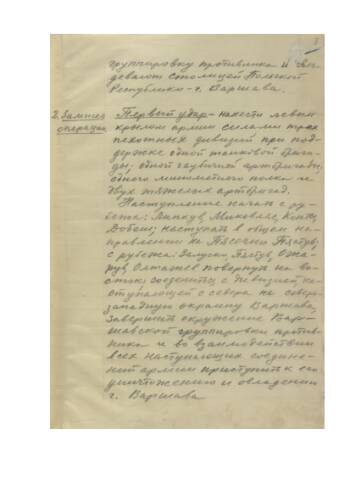 3
группировку противника и овла-
девают столицей Польской
Республики - г. Варшава.
2. Замысел операции
Первый удар - нанести левым
крылом армии силами трех
пехотных дивизий при под-
держке одной танковой брига-
ды, одной гаубичной артбригады,
одного минометного полка и
двух тяжелых артбригад.
Наступление начать с ру-
бежа:
наступать в общем на-
правлении на Пясечно
с рубежа:
повернуть на во-
сток, соединиться с дивизией на-
ступающей с севера на северо-
западную окраину Варшава,
Завершить окружение Вар-
шавской группировки против-
ника и во взаимодействии
всех наступающих соедине-
ний армии приступить к его
уничтожению и овладению
г. Варшава